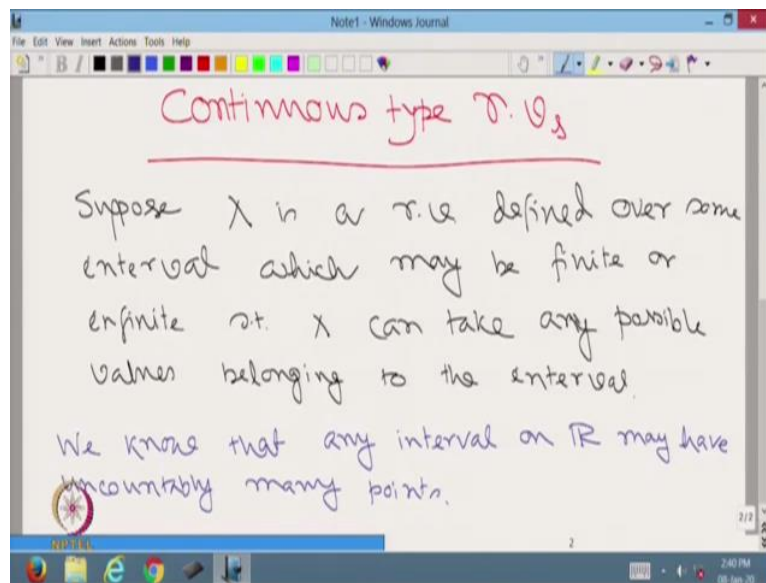 Note1 - Windows Journal
File Edit View Insert Actions Tools Help
B I
Continuous type r.vs
Suppose X is a r.v defined over some
interval which may be finite or
infinite s.t. X can take any possible
values belonging to the interval.
We know that any interval on R may have
uncountably many points.
NPTEL
2/2
2
2:40 PM
08-Jan-20